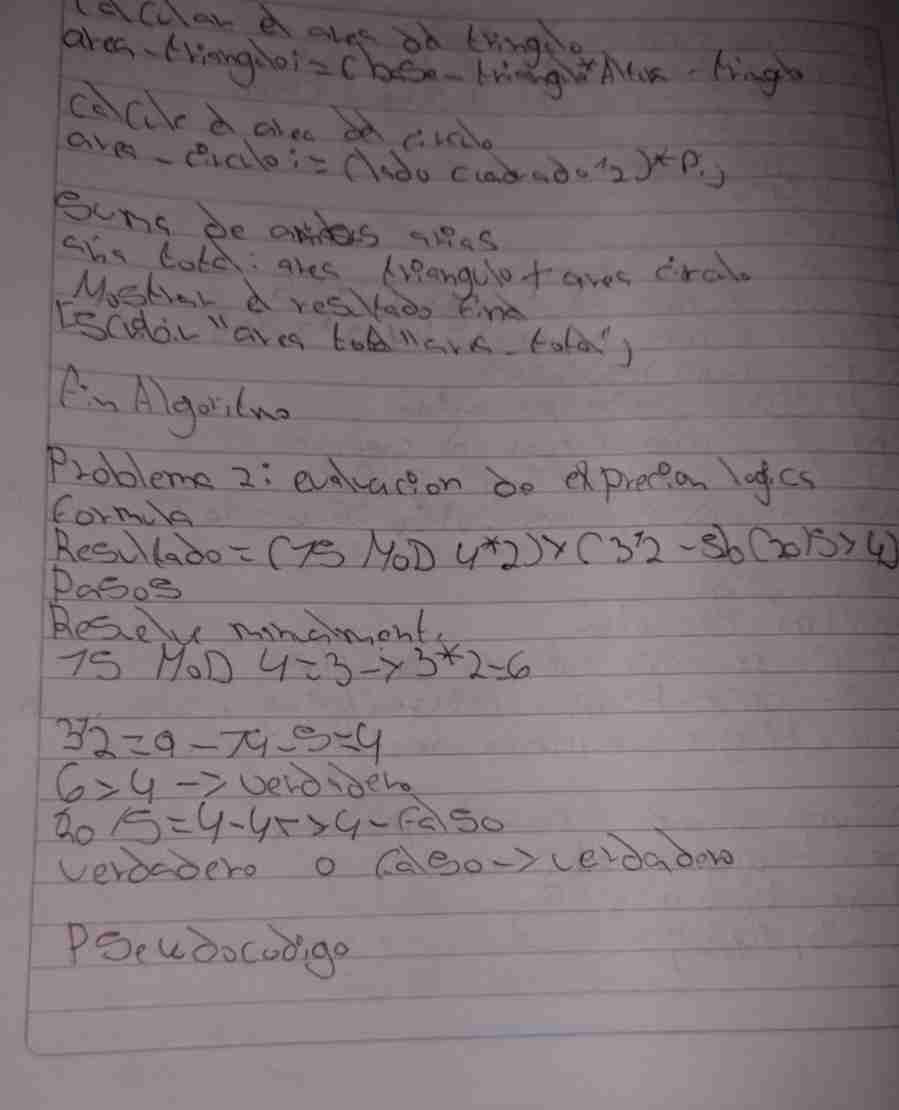 Calcular el area del tringulo
area-triangulo:=(base-triangulo*Altura-tringlo
calcule el area del circulo
area-circulo:=(lado cuadrado^2)*Pi;
Suma de ambas arias
aria total: area triangulo + area circulo
Mostrar el resultado fina
Escribir "area total" area-total";
fin Algoritmo
Problema 2: evaluacion de exprecion logica
formula
Resultado=(15 MOD 4*2)>(3^2-5)o(20/5>4)
Pasos
Resuelve
15 MOD 4=3->3*2=6
3^2=9-79-5=4
6>4->verdidero
20/5=4-4>4-falso
verdadero o falso->verdadero
PSeudocodigo